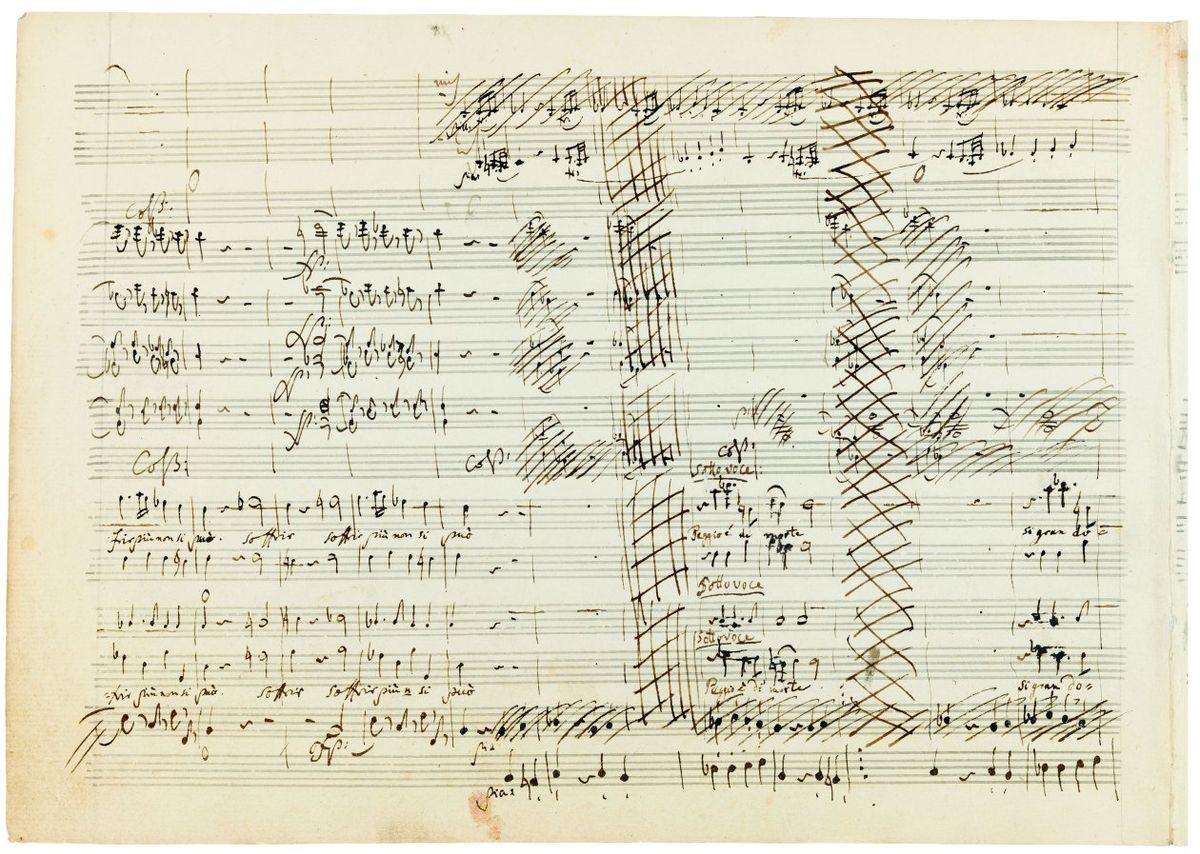 Colß:
Colß:
Colß:
Colß:
sottovoce:
frir più non si può. soffrir soffrir più non si può
Peggio è di morte
si gran do=
sottovoce
sottovoce
=frir più non si può. soffrir soffrir più n si può
Peggio è di morte.
si gran do=